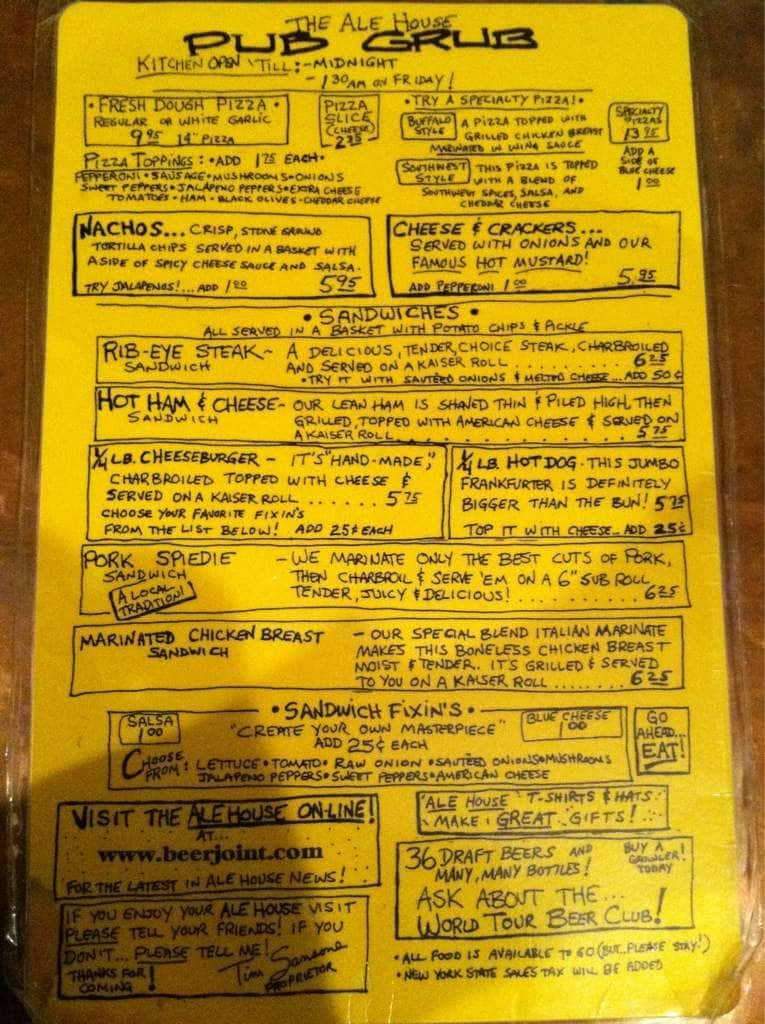 THE ALE HOUSE
PUB GRUB
KITCHEN OPEN 'TILL:-MIDNIGHT
-1 30 AM ON FRIDAY!
• FRESH DOUGH PIZZA •
REGULAR OR WHITE GARLIC
9 95 14" PIZZA
PIZZA
SLICE
(CHEESE)
2 25
PIZZA TOPPINGS: •ADD 1 75 EACH•
PEPPERONI•SAUSAGE•MUSHROOMS•ONIONS
SWEET PEPPERS•JALAPENO PEPPERS•EXTRA CHEESE
TOMATOES•HAM•BLACK OLIVES•CHEDDAR CHEESE
•TRY A SPECIALTY PIZZA!•
BUFFALO STYLE A PIZZA TOPPED WITH
GRILLED CHICKEN BREAST
MARINATED IN WING SAUCE
SOUTHWEST STYLE THIS PIZZA IS TOPPED
WITH A BLEND OF
SOUTHWEST SPICES, SALSA, AND
CHEDDAR CHEESE
SPECIALTY
PIZZAS
13 95
ADD A
SIDE OF
BLUE CHEESE
1 00
NACHOS... CRISP, STONE GROUND
TORTILLA CHIPS SERVED IN A BASKET WITH
A SIDE OF SPICY CHEESE SAUCE AND SALSA.
TRY JALAPENOS!...ADD 1 00 5 95
CHEESE & CRACKERS...
SERVED WITH ONIONS AND OUR
FAMOUS HOT MUSTARD!
ADD PEPPERONI 1 00 5.95
• SANDWICHES •
ALL SERVED IN A BASKET WITH POTATO CHIPS & PICKLE
RIB-EYE STEAK~ A DELICIOUS, TENDER, CHOICE STEAK, CHARBROILED
SANDWICH AND SERVED ON A KAISER ROLL .......... 6 25
•TRY IT WITH SAUTÉED ONIONS & MELTED CHEESE...ADD 50¢
HOT HAM & CHEESE- OUR LEAN HAM IS SHAVED THIN & PILED HIGH, THEN
SANDWICH GRILLED, TOPPED WITH AMERICAN CHEESE & SERVED ON
A KAISER ROLL.................... 5 75
1/4 LB. CHEESEBURGER - IT'S "HAND-MADE,"
CHARBROILED TOPPED WITH CHEESE &
SERVED ON A KAISER ROLL ...... 5 75
CHOOSE YOUR FAVORITE FIXIN'S
FROM THE LIST BELOW! ADD 25¢ EACH
1/4 LB. HOT DOG - THIS JUMBO
FRANKFURTER IS DEFINITELY
BIGGER THAN THE BUN! 5 75
TOP IT WITH CHEESE...ADD 25¢
PORK SPIEDIE - WE MARINATE ONLY THE BEST CUTS OF PORK,
SANDWICH THEN CHARBROIL & SERVE 'EM ON A 6" SUB ROLL
A LOCAL TRADITION! TENDER, JUICY & DELICIOUS! .......... 6 25
MARINATED CHICKEN BREAST - OUR SPECIAL BLEND ITALIAN MARINATE
SANDWICH MAKES THIS BONELESS CHICKEN BREAST
MOIST & TENDER. IT'S GRILLED & SERVED
TO YOU ON A KAISER ROLL ........ 6 25
• SANDWICH FIXIN'S •
SALSA
1 00
"CREATE YOUR OWN MASTERPIECE"
ADD 25¢ EACH
BLUE CHEESE
1 00
CHOOSE FROM: LETTUCE•TOMATO•RAW ONION•SAUTÉED ONIONS•MUSHROOMS
JALAPENO PEPPERS•SWEET PEPPERS•AMERICAN CHEESE
GO
AHEAD...
EAT!
VISIT THE ALE HOUSE ON-LINE!
AT...
www.beerjoint.com
FOR THE LATEST IN ALE HOUSE NEWS!
'ALE HOUSE' T-SHIRTS & HATS
MAKE GREAT GIFTS!
36 DRAFT BEERS AND
MANY, MANY BOTTLES!
BUY A
GROWLER!
TODAY
ASK ABOUT THE...
WORLD TOUR BEER CLUB!
IF YOU ENJOY YOUR ALE HOUSE VISIT
PLEASE TELL YOUR FRIENDS! IF YOU
DON'T... PLEASE TELL ME!
THANKS FOR
COMING!
Tim Sansone
PROPRIETOR
• ALL FOOD IS AVAILABLE TO GO (BUT...PLEASE STAY!)
• NEW YORK STATE SALES TAX WILL BE ADDED